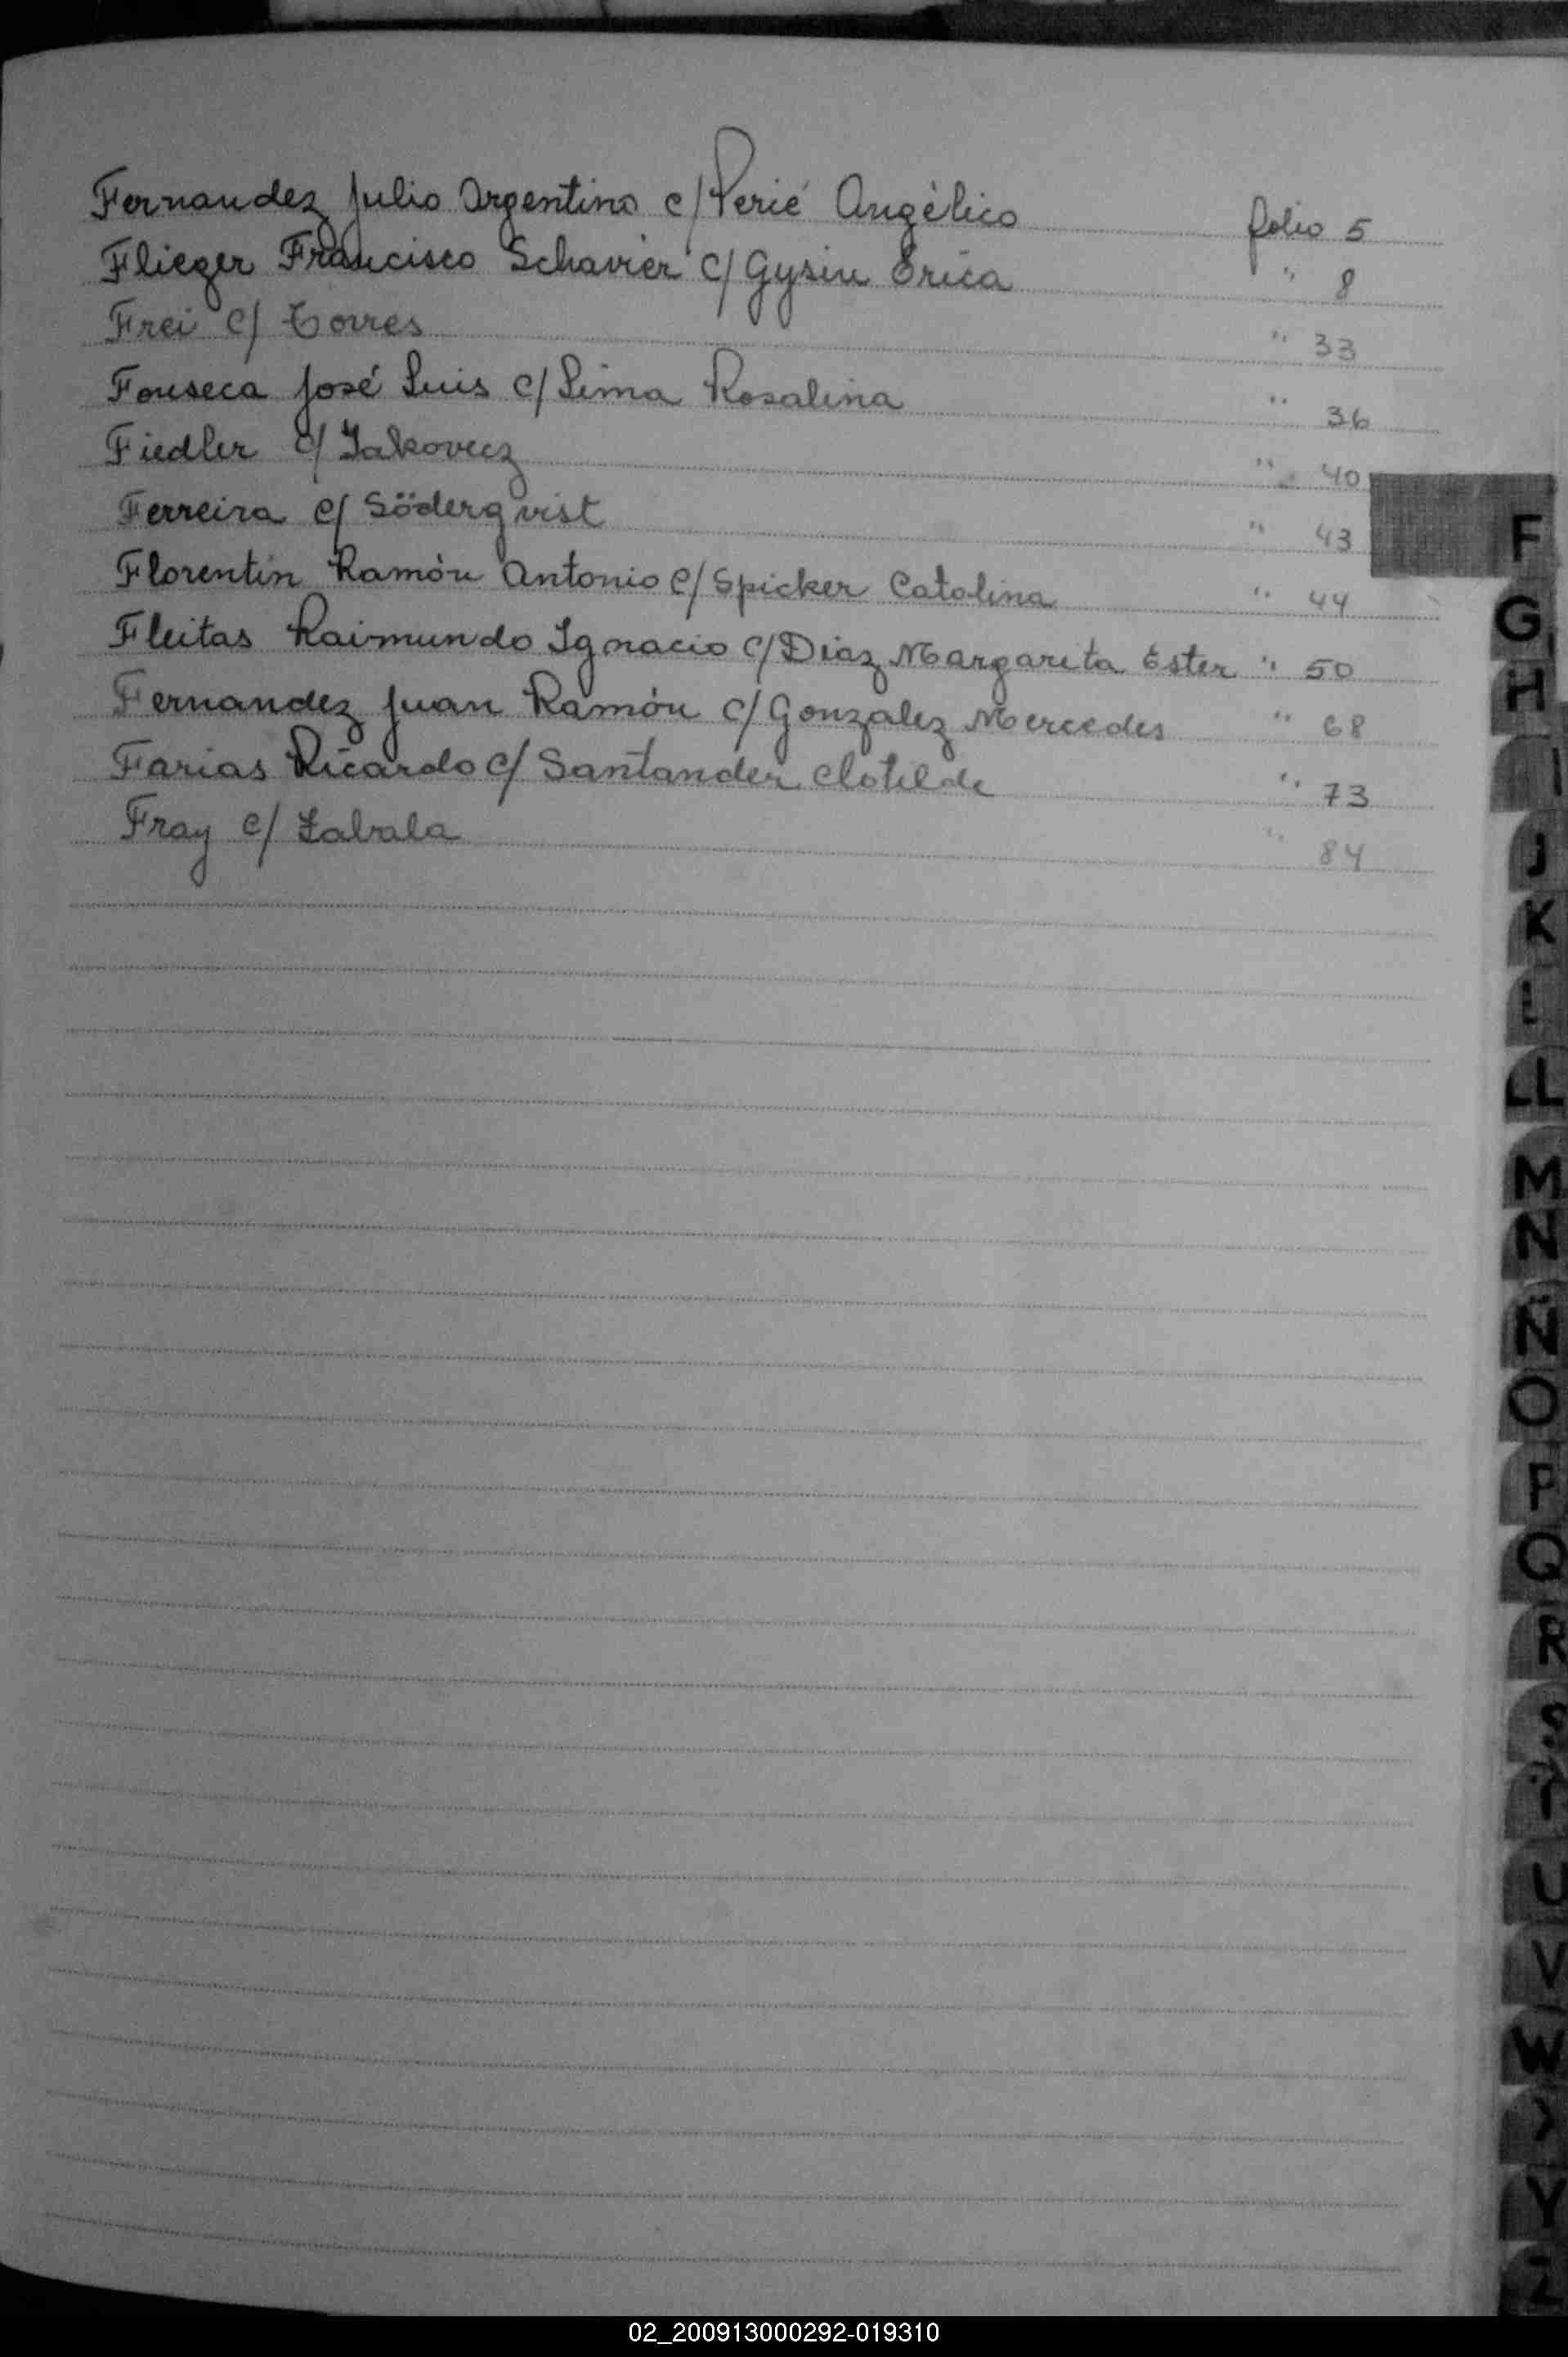 Fernandez Julio Argentino c/ Perié Angélico folio 5
Flieger Francisco Schavier c/ Gysin Erica " 8
Frei c/ Torres " 33
Fonseca José Luis c/ Lima Rosalina " 36
Fiedler c/ Jakovecz " 40
Ferreira c/ Söderqvist " 43
Florentín Ramón Antonio c/ Spicker Catalina " 44
Fleitas Raimundo Ignacio c/ Diaz Margarita Ester " 50
Fernandez Juan Ramón c/ Gonzalez Mercedes " 68
Farias Ricardo c/ Santander Clotilde " 73
Fray c/ Labala " 84
F
G
H
I
J
K
L
LL
M
N
Ñ
O
P
Q
R
S
T
U
V
W
Y
Z
02_200913000292-019310